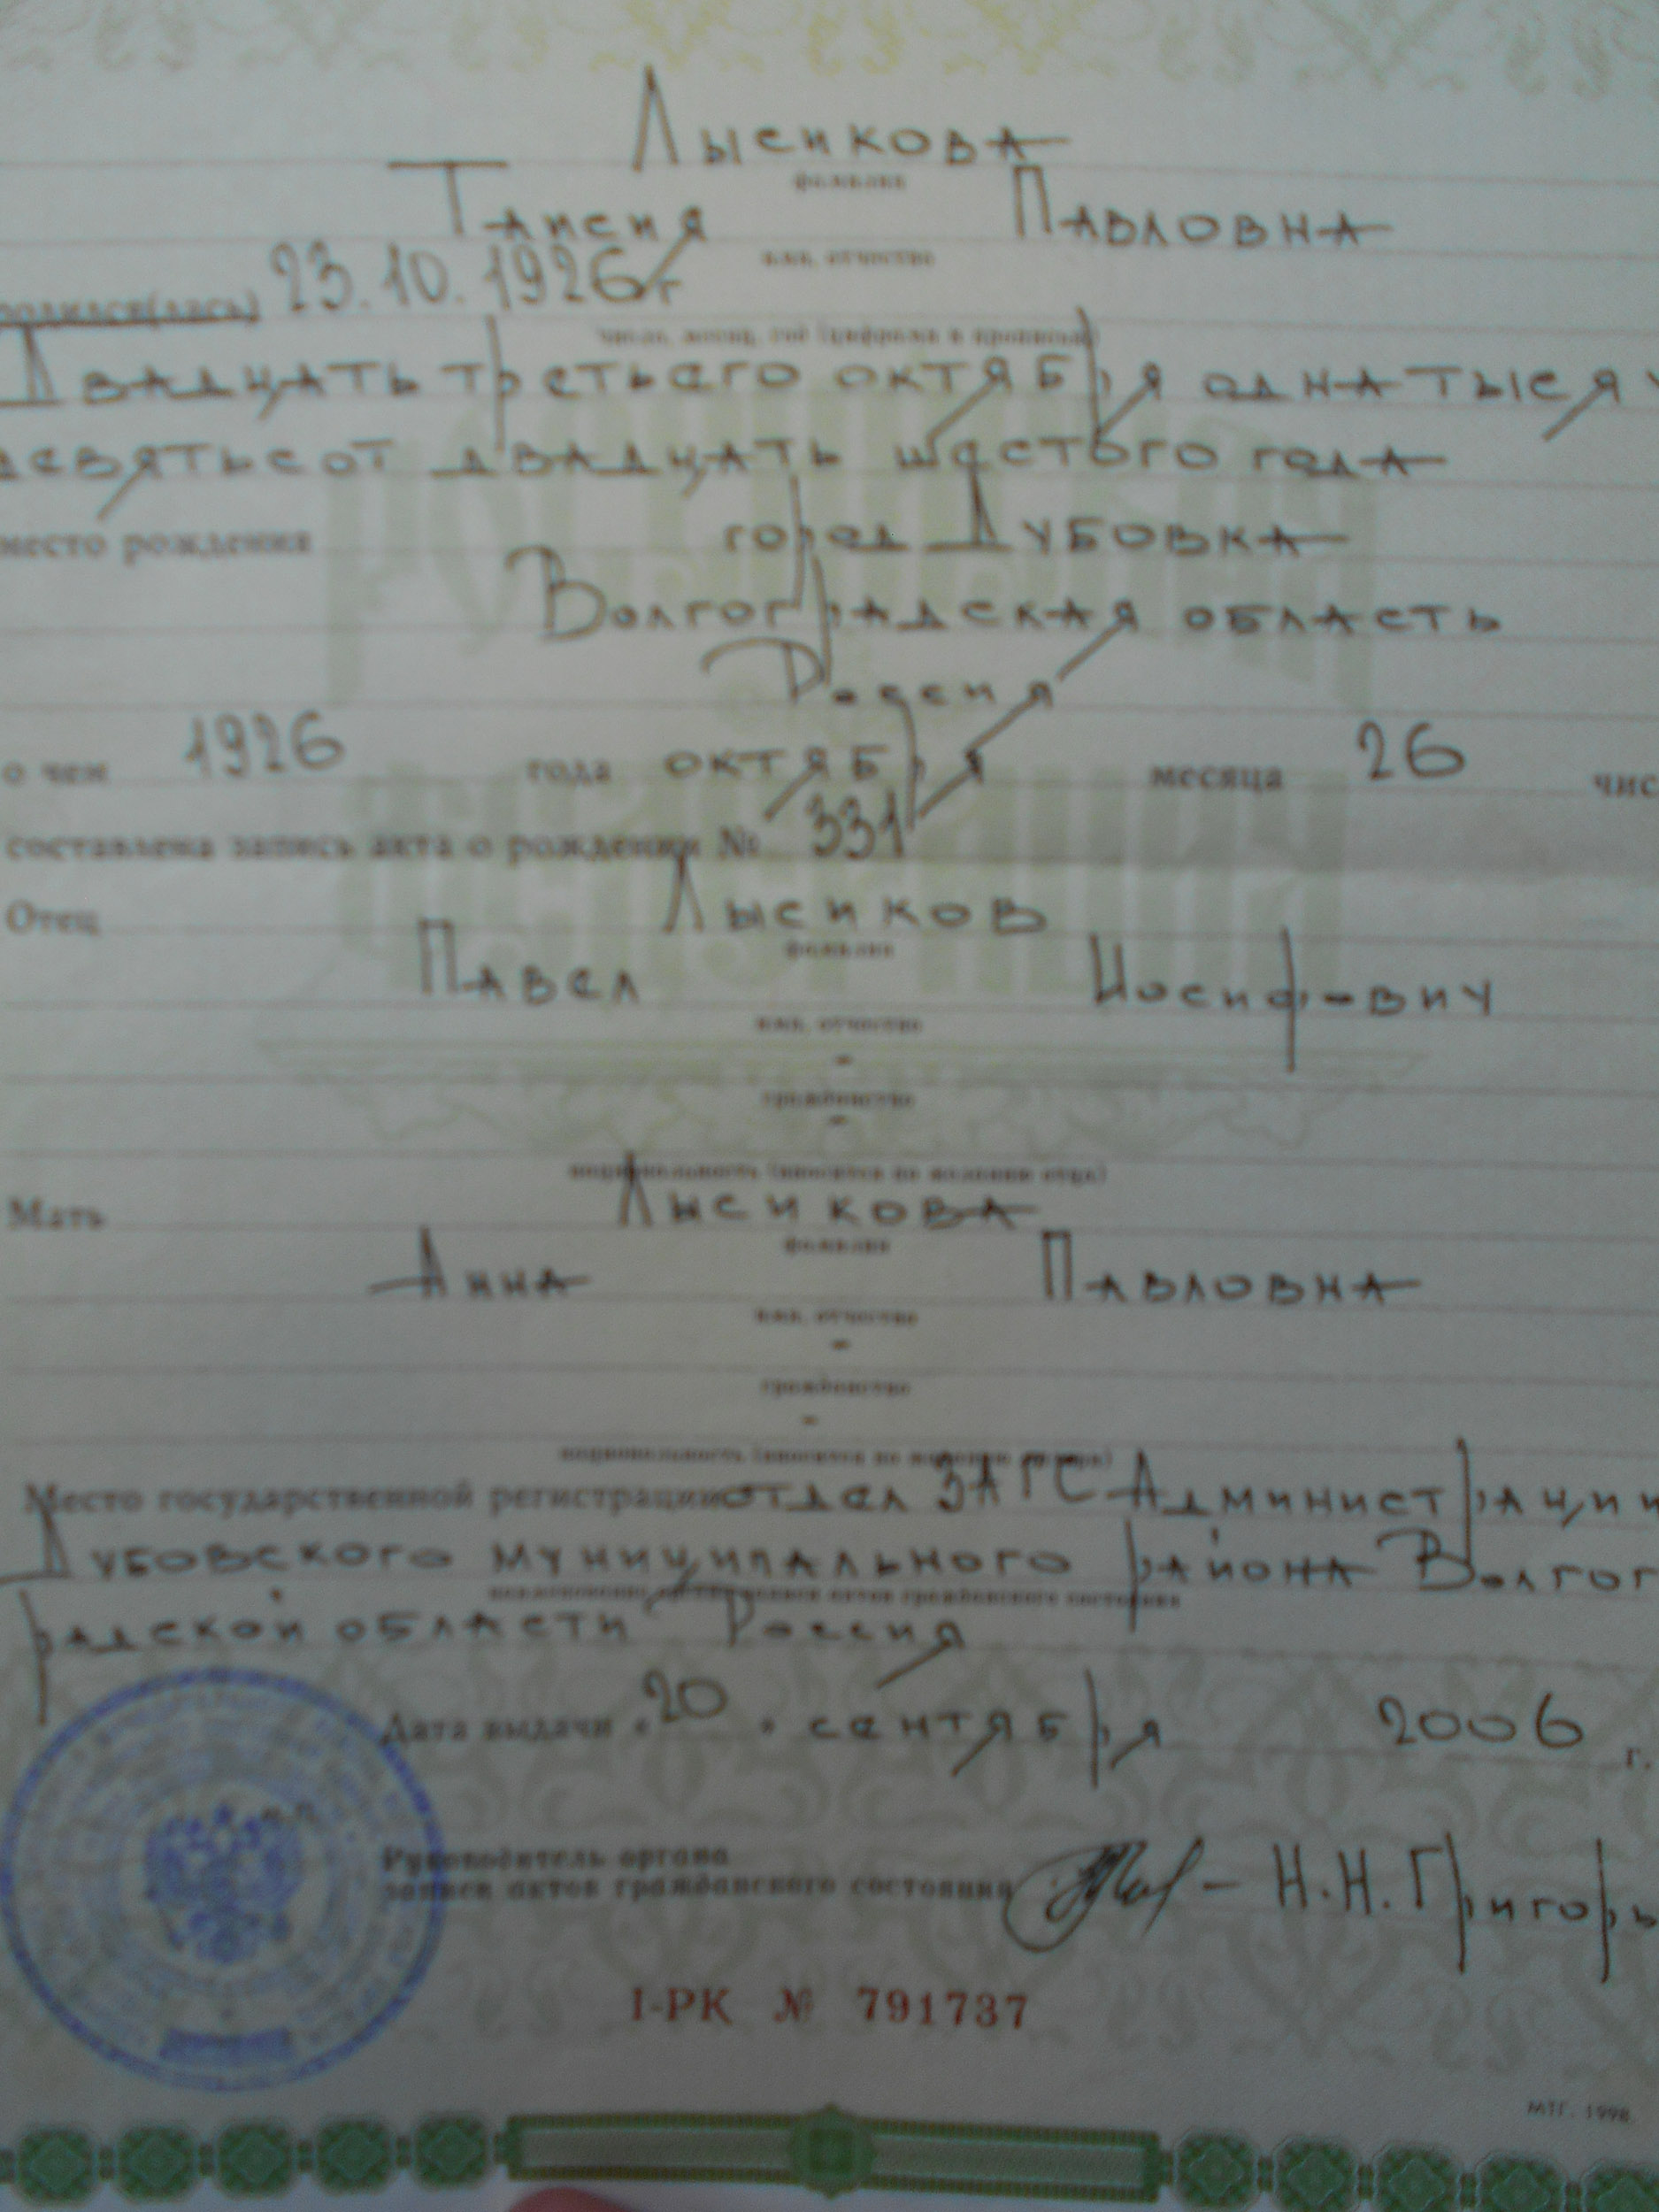 Лысикова
фамилия
Таисия Павловна
имя, отчество
родился(лась) 23.10.1926 г
число, месяц, год (цифрами и прописью)
Двадцать третьего октября одна тысяч
девятьсот двадцать шестого года
место рождения город Дубовка
Волгоградская область
Россия
о чем 1926 года октября месяца 26 чис
составлена запись акта о рождении № 331
Отец Лысиков
фамилия
Павел Иосифович
имя, отчество
-
гражданство
-
национальность (вносится по желанию отца)
Мать Лысикова
фамилия
Анна Павловна
имя, отчество
-
гражданство
-
национальность (вносится по желанию матери)
Место государственной регистрации отдел ЗАГС Администрации
Дубовского муниципального района Волгог
наименование органа записи актов гражданского состояния
радской области Россия
Дата выдачи «20» сентября 2006 г.
М.П.
Руководитель органа
записи актов гражданского состояния Н.Н.Григорь
I-РК № 791737
МТГ. 1998.